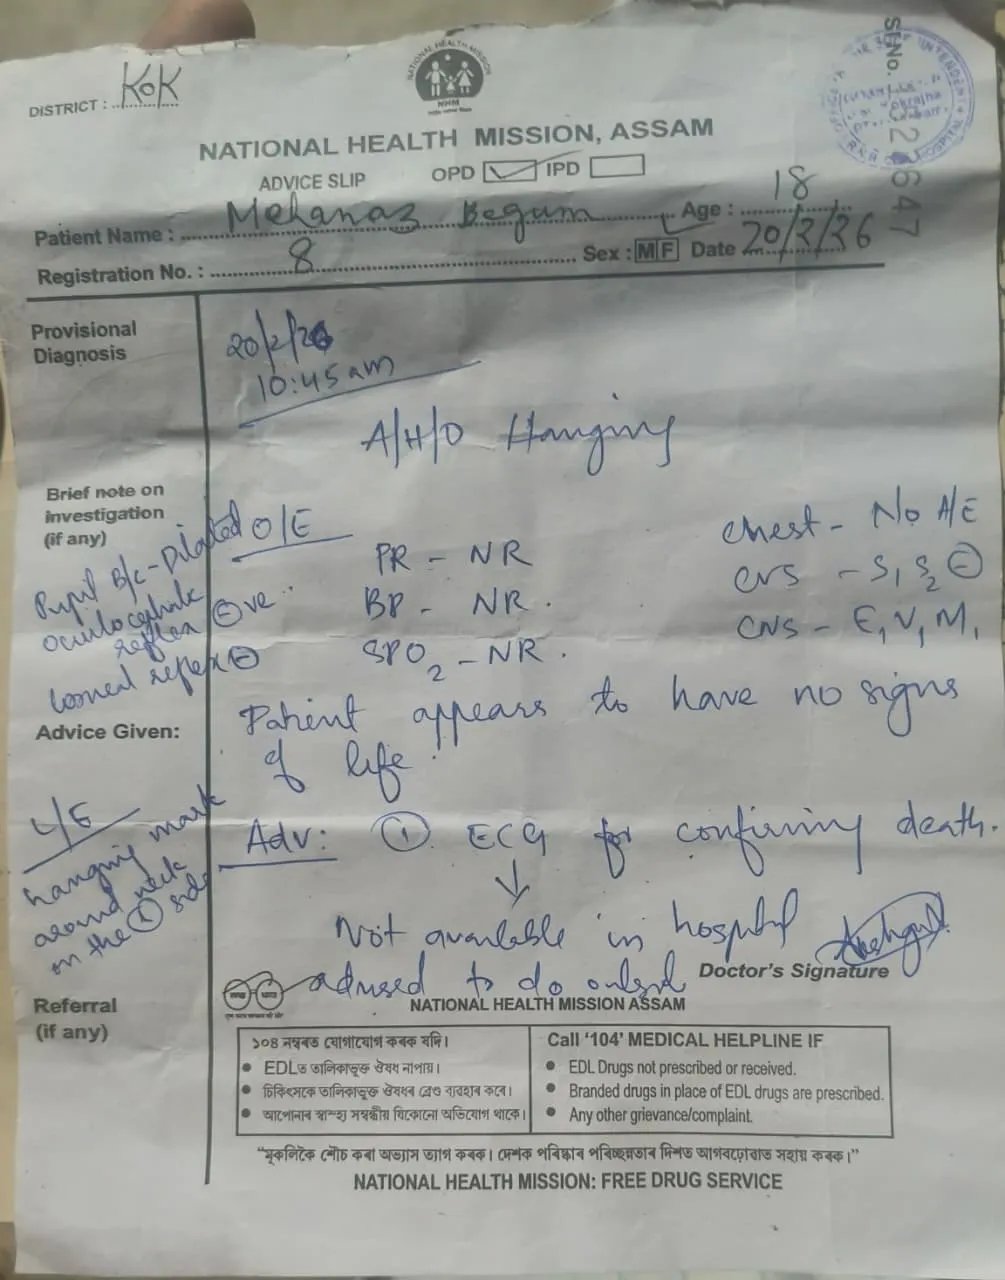 DISTRICT : KOK
NATIONAL HEALTH MISSION
NHM
SI.No.
647
HOSPITAL
NATIONAL HEALTH MISSION, ASSAM
ADVICE SLIP OPD IPD
Patient Name : Mehanaz Begum Age : 18
Registration No. : 8 Sex : M F Date 20/2/26
Provisional Diagnosis
20/2/26
10:45 am
A/H/O Hanging
Brief note on
investigation
(if any)
O/E
Pupil B/L - Dilated
oculocephalic
reflex ⊖ve
Corneal reflex ⊖
PR - NR
BP - NR.
SPO2 - NR.
Chest - No A/E
CVS - S1 S2 ⊖
CNS - E1 V1 M1
Patient appears to have no signs
of life.
Advice Given:
L/E
hanging mark
around neck
on the side
Adv: ① ECG for confirming death.
↓
Not available in hospital
advised to do outside
Doctor's Signature
Referral
(if any)
NATIONAL HEALTH MISSION ASSAM
১০৪ নম্বৰত যোগাযোগ কৰক যদি।
• EDLত তালিকাভুক্ত ঔষধ নাপায়।
• চিকিৎসকে তালিকাভুক্ত ঔষধৰ ব্ৰেণ্ড ব্যৱহাৰ কৰে।
• আপোনাৰ স্বাস্থ্য সম্বন্ধীয় যিকোনো অভিযোগ থাকে।
Call '104' MEDICAL HELPLINE IF
• EDL Drugs not prescribed or received.
• Branded drugs in place of EDL drugs are prescribed.
• Any other grievance/complaint.
"মুকলিকৈ শৌচ কৰা অভ্যাস ত্যাগ কৰক। দেশক পৰিষ্কাৰ পৰিচ্ছন্নতাৰ দিশত আগবঢ়োৱাত সহায় কৰক।"
NATIONAL HEALTH MISSION: FREE DRUG SERVICE